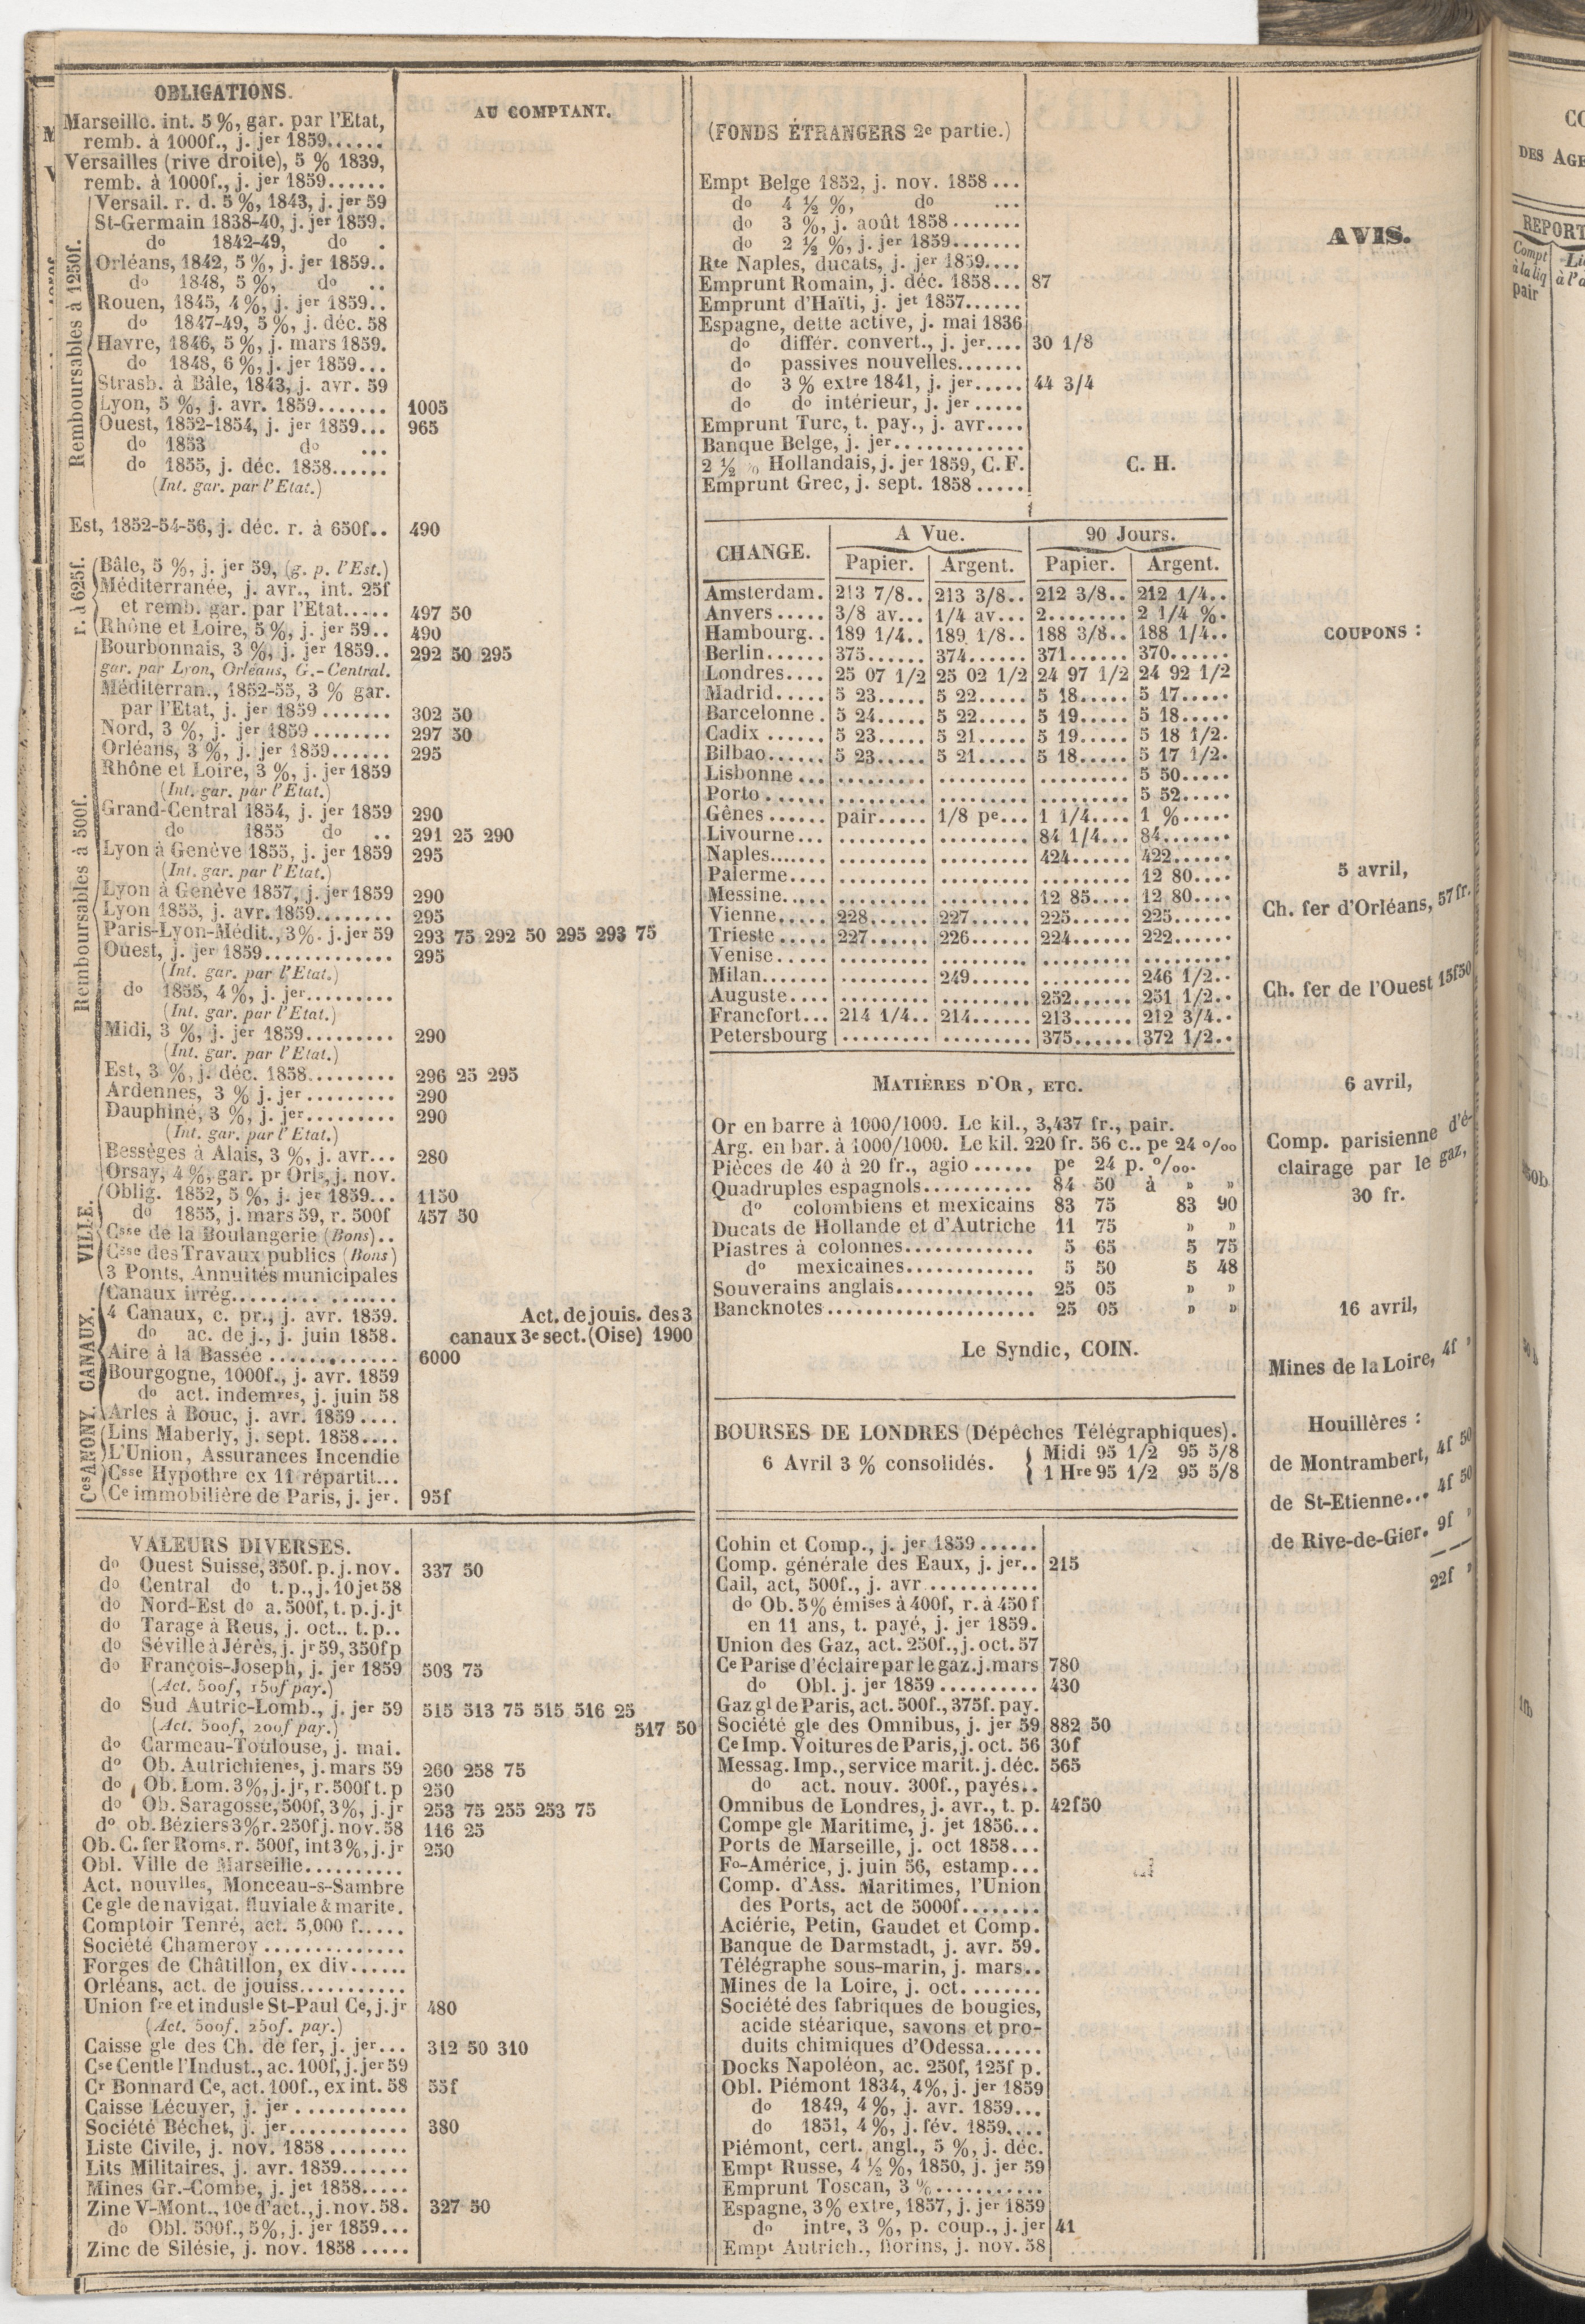 OBLIGATIONS.
AU COMPTANT.
Marseille. int. 5 %, gar. par l'Etat,
remb. à 1000f., j. jer 1859......
Versailles (rive droite), 5 % 1839,
remb. à 1000f., j. jer 1859......
Remboursables à 1250f.
Versail. r. d. 5 %, 1843, j. jer 59
St-Germain 1838-40, j. jer 1859.
do 1842-49, do .
Orléans, 1842, 5 %, j. jer 1859..
do 1848, 5 %, do ..
Rouen, 1845, 4 %, j. jer 1859..
do 1847-49, 5 %, j. déc. 58
Havre, 1846, 5 %, j. mars 1859.
do 1848, 6 %, j. jer 1859...
Strasb. à Bâle, 1843, j. avr. 59
Lyon, 5 %, j. avr. 1859....... 1005
Ouest, 1852-1854, j. jer 1859... 965
do 1853 do ...
do 1855, j. déc. 1858......
(Int. gar. par l'Etat.)
Est, 1852-54-56, j. déc. r. à 650f.. 490
r. à 625f.
Bâle, 5 %, j. jer 59, (g. p. l'Est.)
Méditerranée, j. avr., int. 25f
et remb. gar. par l'Etat..... 497 50
Rhône et Loire, 5 %, j. jer 59.. 490
Remboursables à 500f.
Bourbonnais, 3 %, j. jer 1859.. 292 50 295
gar. par Lyon, Orléans, G.-Central.
Méditerran., 1852-55, 3 % gar.
par l'Etat, j. jer 1859 ....... 302 50
Nord, 3 %, j. jer 1859 ........ 297 50
Orléans, 3 %, j. jer 1859...... 295
Rhône et Loire, 3 %, j. jer 1859
(Int. gar. par l'Etat.)
Grand-Central 1854, j. jer 1859 290
do 1855 do .. 291 25 290
Lyon à Genève 1855, j. jer 1859 295
(Int. gar. par l'Etat.)
Lyon à Genève 1857, j. jer 1859 290
Lyon 1855, j. avr. 1859........ 295
Paris-Lyon-Médit., 3%. j. jer 59 293 75 292 50 295 293 75
Ouest, j. jer 1859............. 295
(Int. gar. par l'Etat.)
do 1855, 4%, j. jer.........
(Int. gar. par l'Etat.)
Midi, 3 %, j. jer 1859......... 290
(Int. gar. par l'Etat.)
Est, 3 %, j. déc. 1858......... 296 25 295
Ardennes, 3 % j. jer ......... 290
Dauphiné, 3 %, j. jer......... 290
(Int. gar. par l'Etat.)
Bessèges à Alais, 3 %, j. avr... 280
Orsay, 4 %, gar. pr Orls, j. nov.
VILLE.
Oblig. 1852, 5 %, j. jer 1859... 1150
do 1855, j. mars 59, r. 500f 457 50
Csse de la Boulangerie (Bons)..
Csse des Travaux publics (Bons)
3 Ponts, Annuités municipales
CANAUX.
Canaux irrég......... .......
4 Canaux, c. pr., j. avr. 1859. Act. de jouis. des 3
do ac. de j., j. juin 1858. canaux 3e sect. (Oise) 1900
Aire à la Bassée ............. 6000
Bourgogne, 1000f., j. avr. 1859
do act. indemres, j. juin 58
Arles à Bouc, j. avr. 1859 ....
Ces ANONY.
Lins Maberly, j. sept. 1858....
L'Union, Assurances Incendie
Csse Hypothre ex 11 répartit...
Ce immobilière de Paris, j. jer. 95f
VALEURS DIVERSES.
do Ouest Suisse, 350f. p. j. nov. 337 50
do Central do t. p., j. 10 jet 58
do Nord-Est do a. 500f, t. p. j. jt
do Tarage à Reus, j. oct.. t. p..
do Séville à Jérès, j. jr 59, 350f p
do François-Joseph, j. jer 1859 503 75
(Act. 500f, 150f pay.)
do Sud Autric-Lomb., j. jer 59 515 513 75 515 516 25
(Act. 500f, 200f pay.) 517 50
do Carmeau-Toulouse, j. mai.
do Ob. Autrichienes, j. mars 59 260 258 75
do Ob. Lom. 3%, j. jr, r. 500f t. p 250
do Ob. Saragosse, 500f, 3%, j. jr 253 75 255 253 75
do ob. Béziers 3% r. 250f j. nov. 58 116 25
Ob. C. fer Roms. r. 500f, int 3%, j. jr 250
Obl. Ville de Marseille..........
Act. nouvlles, Monceau-s-Sambre
Ce gle de navigat. fluviale & marite.
Comptoir Tenré, act. 5,000 f.....
Société Chameroy ..............
Forges de Châtillon, ex div......
Orléans, act. de jouiss...........
Union fre et indusle St-Paul Ce, j. jr 480
(Act. 500f. 250f. pay.)
Caisse gle des Ch. de fer, j. jer... 312 50 310
Cse Centle l'Indust., ac. 100f, j. jer 59
Cr Bonnard Ce, act. 100f., ex int. 58 55f
Caisse Lécuyer, j. jer ...........
Société Béchet, j. jer............ 380
Liste Civile, j. nov. 1858 ........
Lits Militaires, j. avr. 1859.......
Mines Gr.-Combe, j. jet 1858.....
Zinc V-Mont., 10e d'act., j. nov. 58. 327 50
do Obl. 500f., 5%, j. jer 1859...
Zinc de Silésie, j. nov. 1858 .....
(FONDS ÉTRANGERS 2e partie.)
Empt Belge 1852, j. nov. 1858 ...
do 4 ½ %, do ...
do 3 %, j. août 1858 .......
do 2 ½ %, j. jer 1859.......
Rte Naples, ducats, j. jer 1859....
Emprunt Romain, j. déc. 1858... 87
Emprunt d'Haïti, j. jet 1857......
Espagne, dette active, j. mai 1836
do différ. convert., j. jer.... 30 1/8
do passives nouvelles.......
do 3 % extre 1841, j. jer..... 44 3/4
do do intérieur, j. jer .....
Emprunt Turc, t. pay., j. avr....
Banque Belge, j. jer.............
2 ½ % Hollandais, j. jer 1859, C. F. C. H.
Emprunt Grec, j. sept. 1858 .....
CHANGE. A Vue. 90 Jours.
Papier. Argent. Papier. Argent.
Amsterdam. 213 7/8.. 213 3/8.. 212 3/8.. 212 1/4..
Anvers ..... 3/8 av... 1/4 av... 2........ 2 1/4 %.
Hambourg.. 189 1/4.. 189 1/8.. 188 3/8.. 188 1/4..
Berlin...... 375...... 374...... 371...... 370......
Londres.... 25 07 1/2 25 02 1/2 24 97 1/2 24 92 1/2
Madrid..... 5 23..... 5 22..... 5 18..... 5 17.....
Barcelonne. 5 24..... 5 22..... 5 19..... 5 18.....
Cadix ...... 5 23..... 5 21..... 5 19..... 5 18 1/2.
Bilbao...... 5 23..... 5 21..... 5 18..... 5 17 1/2.
Lisbonne ... ......... ......... ......... 5 50.....
Porto ...... ......... ......... ......... 5 52.....
Gênes ...... pair..... 1/8 pe... 1 1/4.... 1 %.....
Livourne... ......... ......... 84 1/4... 84.......
Naples....... ......... ......... 424...... 422......
Palerme.... ......... ......... ......... 12 80....
Messine..... ......... ......... 12 85.... 12 80....
Vienne..... 228...... 227...... 225...... 225......
Trieste..... 227...... 226...... 224...... 222......
Venise..... ......... ......... ......... .........
Milan....... ......... 249...... ......... 246 1/2..
Auguste.... ......... ......... 252...... 251 1/2..
Francfort... 214 1/4.. 214...... 213...... 212 3/4..
Petersbourg ......... ......... 375...... 372 1/2..
MATIÈRES D'OR, ETC.
Or en barre à 1000/1000. Le kil., 3,437 fr., pair.
Arg. en bar. à 1000/1000. Le kil. 220 fr. 56 c.. pe 24 o/oo
Pièces de 40 à 20 fr., agio ...... pe 24 p. o/oo.
Quadruples espagnols........... 84 50 à » »
do colombiens et mexicains 83 75 83 90
Ducats de Hollande et d'Autriche 11 75 » »
Piastres à colonnes............. 5 65 5 75
do mexicaines............. 5 50 5 48
Souverains anglais.............. 25 05 » »
Bancknotes..................... 25 05 » »
Le Syndic, COIN.
BOURSES DE LONDRES (Dépêches Télégraphiques).
6 Avril 3 % consolidés. Midi 95 1/2 95 5/8
1 Hre 95 1/2 95 5/8
Cohin et Comp., j. jer 1859 ......
Comp. générale des Eaux, j. jer.. 215
Cail, act, 500f., j. avr ...........
do Ob. 5% émises à 400f, r. à 450 f
en 11 ans, t. payé, j. jer 1859.
Union des Gaz, act. 250f., j. oct. 57
Ce Parise d'éclaire par le gaz. j. mars 780
do Obl. j. jer 1859 .......... 430
Gaz gl de Paris, act. 500f., 375f. pay.
Société gle des Omnibus, j. jer 59 882 50
Ce Imp. Voitures de Paris, j. oct. 56 30f
Messag. Imp., service marit. j. déc. 565
do act. nouv. 300f., payés..
Omnibus de Londres, j. avr., t. p. 42f50
Compe gle Maritime, j. jet 1856...
Ports de Marseille, j. oct 1858...
Fo-Américe, j. juin 56, estamp...
Comp. d'Ass. Maritimes, l'Union
des Ports, act de 5000f........
Aciérie, Petin, Gaudet et Comp.
Banque de Darmstadt, j. avr. 59.
Télégraphe sous-marin, j. mars..
Mines de la Loire, j. oct.........
Société des fabriques de bougies,
acide stéarique, savons et pro-
duits chimiques d'Odessa......
Docks Napoléon, ac. 250f, 125f p.
Obl. Piémont 1834, 4%, j. jer 1859
do 1849, 4 %, j. avr. 1859...
do 1851, 4 %, j. fév. 1859....
Piémont, cert. angl., 5 %, j. déc.
Empt Russe, 4 ½ %, 1850, j. jer 59
Emprunt Toscan, 3 %...........
Espagne, 3% extre, 1857, j. jer 1859
do intre, 3 %, p. coup., j. jer 41
Empt Autrich., florins, j. nov. 58
AVIS.
COUPONS :
5 avril,
Ch. fer d'Orléans, 57 fr.
Ch. fer de l'Ouest 15f50
6 avril,
Comp. parisienne d'é-
clairage par le gaz,
30 fr.
16 avril,
Mines de la Loire, 4f »
Houillères :
de Montrambert, 4f 50
de St-Etienne... 4f 50
de Rive-de-Gier. 9f »
22f »
CO
DES AGE
REPORT
Compt
à la liq
pair
Li
à l'a